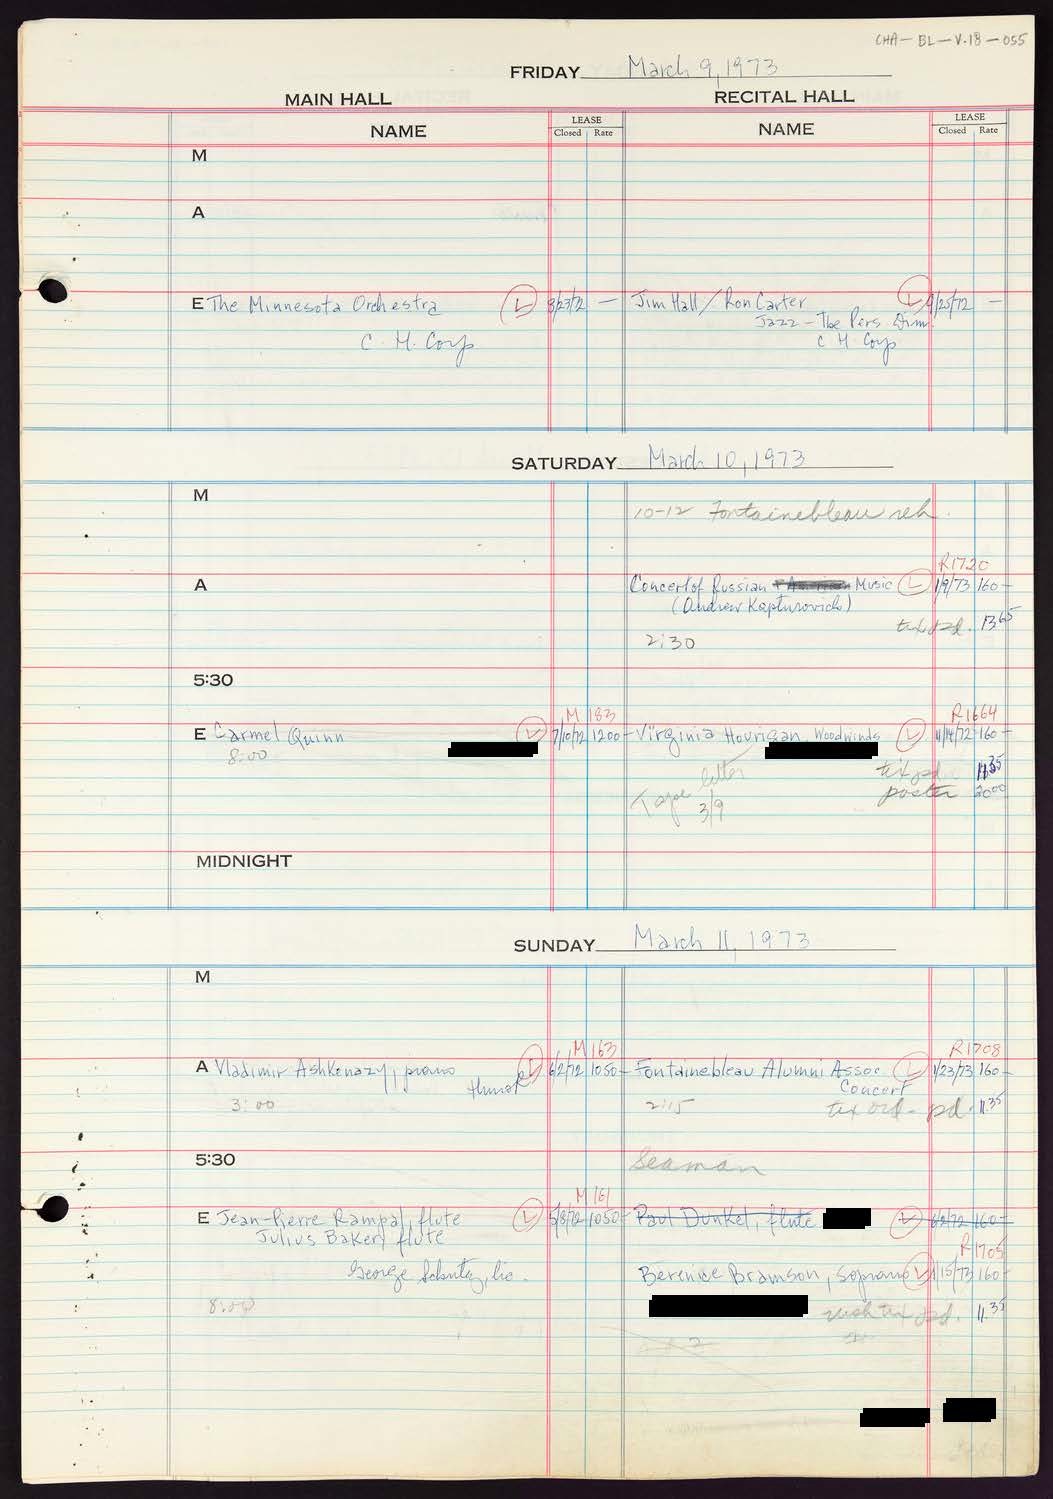 CHA-BL-V.18-055
FRIDAY March 9, 1973
MAIN HALL RECITAL HALL
NAME LEASE Closed Rate NAME LEASE Closed Rate
M
A
E The Minnesota Orchestra L 8/23/72 — Jim Hall/Ron Carter L 9/25/72 —
Jazz - The Pers. Dim.
C. H. Corp C H Corp
SATURDAY March 10, 1973
M
10-12 Fontainebleau reh.
R1720
A Concert of Russian Music L 1/9/73 160-
(Andrew Kapturovich)
tix pd. 13 65
2:30
5:30
M 183 R1664
E Carmel Quinn L 7/10/72 1200- Virginia Hourigan, Woodwinds L 160-
8:00
tix pd 11 35
Tape letter poster 20 00
3/9
MIDNIGHT
SUNDAY March 11, 1973
M
M 163 R1708
A Vladimir Ashkenazy, piano L 6/2/72 1050- Fontainebleau Alumni Assoc. L 1/23/73 160-
Hurok Concert
3:00 2:15 tix ord- pd. 11.35
5:30 Seaman
M 161
E Jean-Pierre Rampal, flute L 5/8/72 1050- Paul Dunkel, flute L 6/2/72 160-
Julius Baker, flute
R1705
George Schutz, Inc. Berenice Bramson, Soprano L 1/15/73 160-
8:00 rush tix pd. 11.35